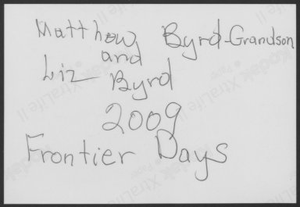 Matthow Byrd-Grandson
and
Liz Byrd
2009
Frontier Days